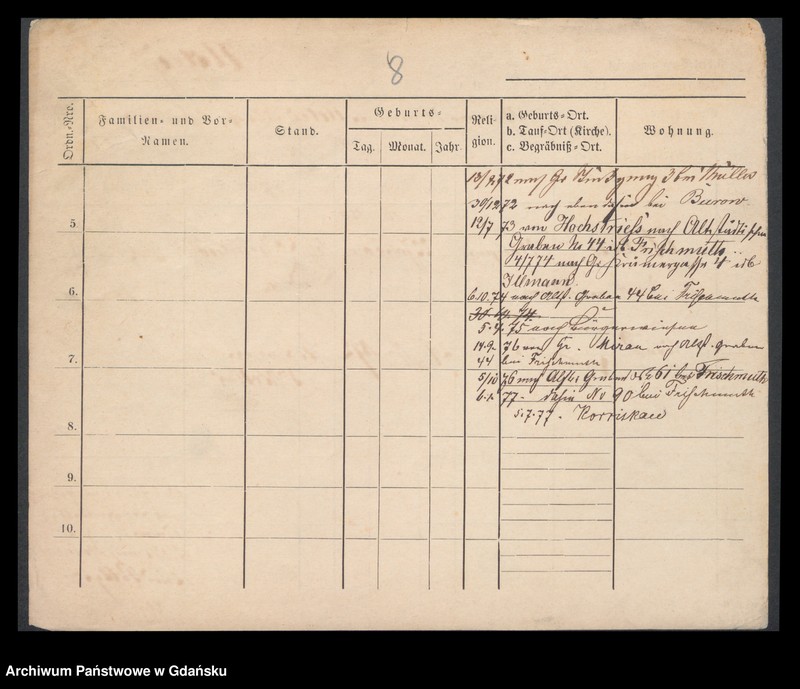 8
Ordn.-Nro.
Familien- und Vor-
Namen.
Stand.
Geburts-
Tag.
Monat.
Jahr.
Reli-
gion.
a. Geburts-Ort.
b. Tauf-Ort (Kirche).
c. Begräbniß-Ort.
Wohnung.
13/9 72 nach 3 bei Müller
30/12 72 nach bei Burow
5.
12/7 73 von Hochstriess nach Altstädtischen
Graben No 44 Frischmuth
4/7 74 nach Krämergasse 4
Illmann
6.
6.10.74 nach Altst. Graben 44 bei Frischmuth
5.4.75 nach Bürgerwiesen
14.9.76 von Gr. nach Altst. Graben
7.
44 bei Frischmuth
5/10 76 nach Altst. Graben 61 bei Frischmuth
6.1.77. No 90 bei Frischmuth
5.7.77.
8.
9.
10.
Archiwum Państwowe w Gdańsku